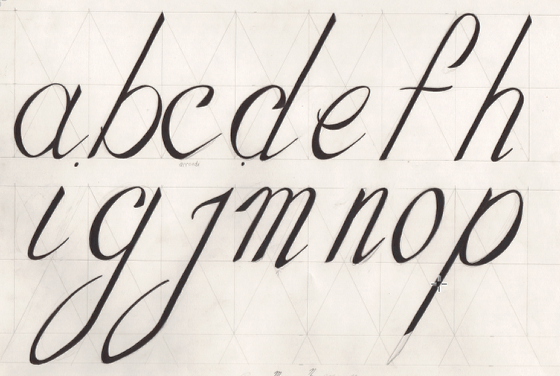 abcdefh
igjmnop